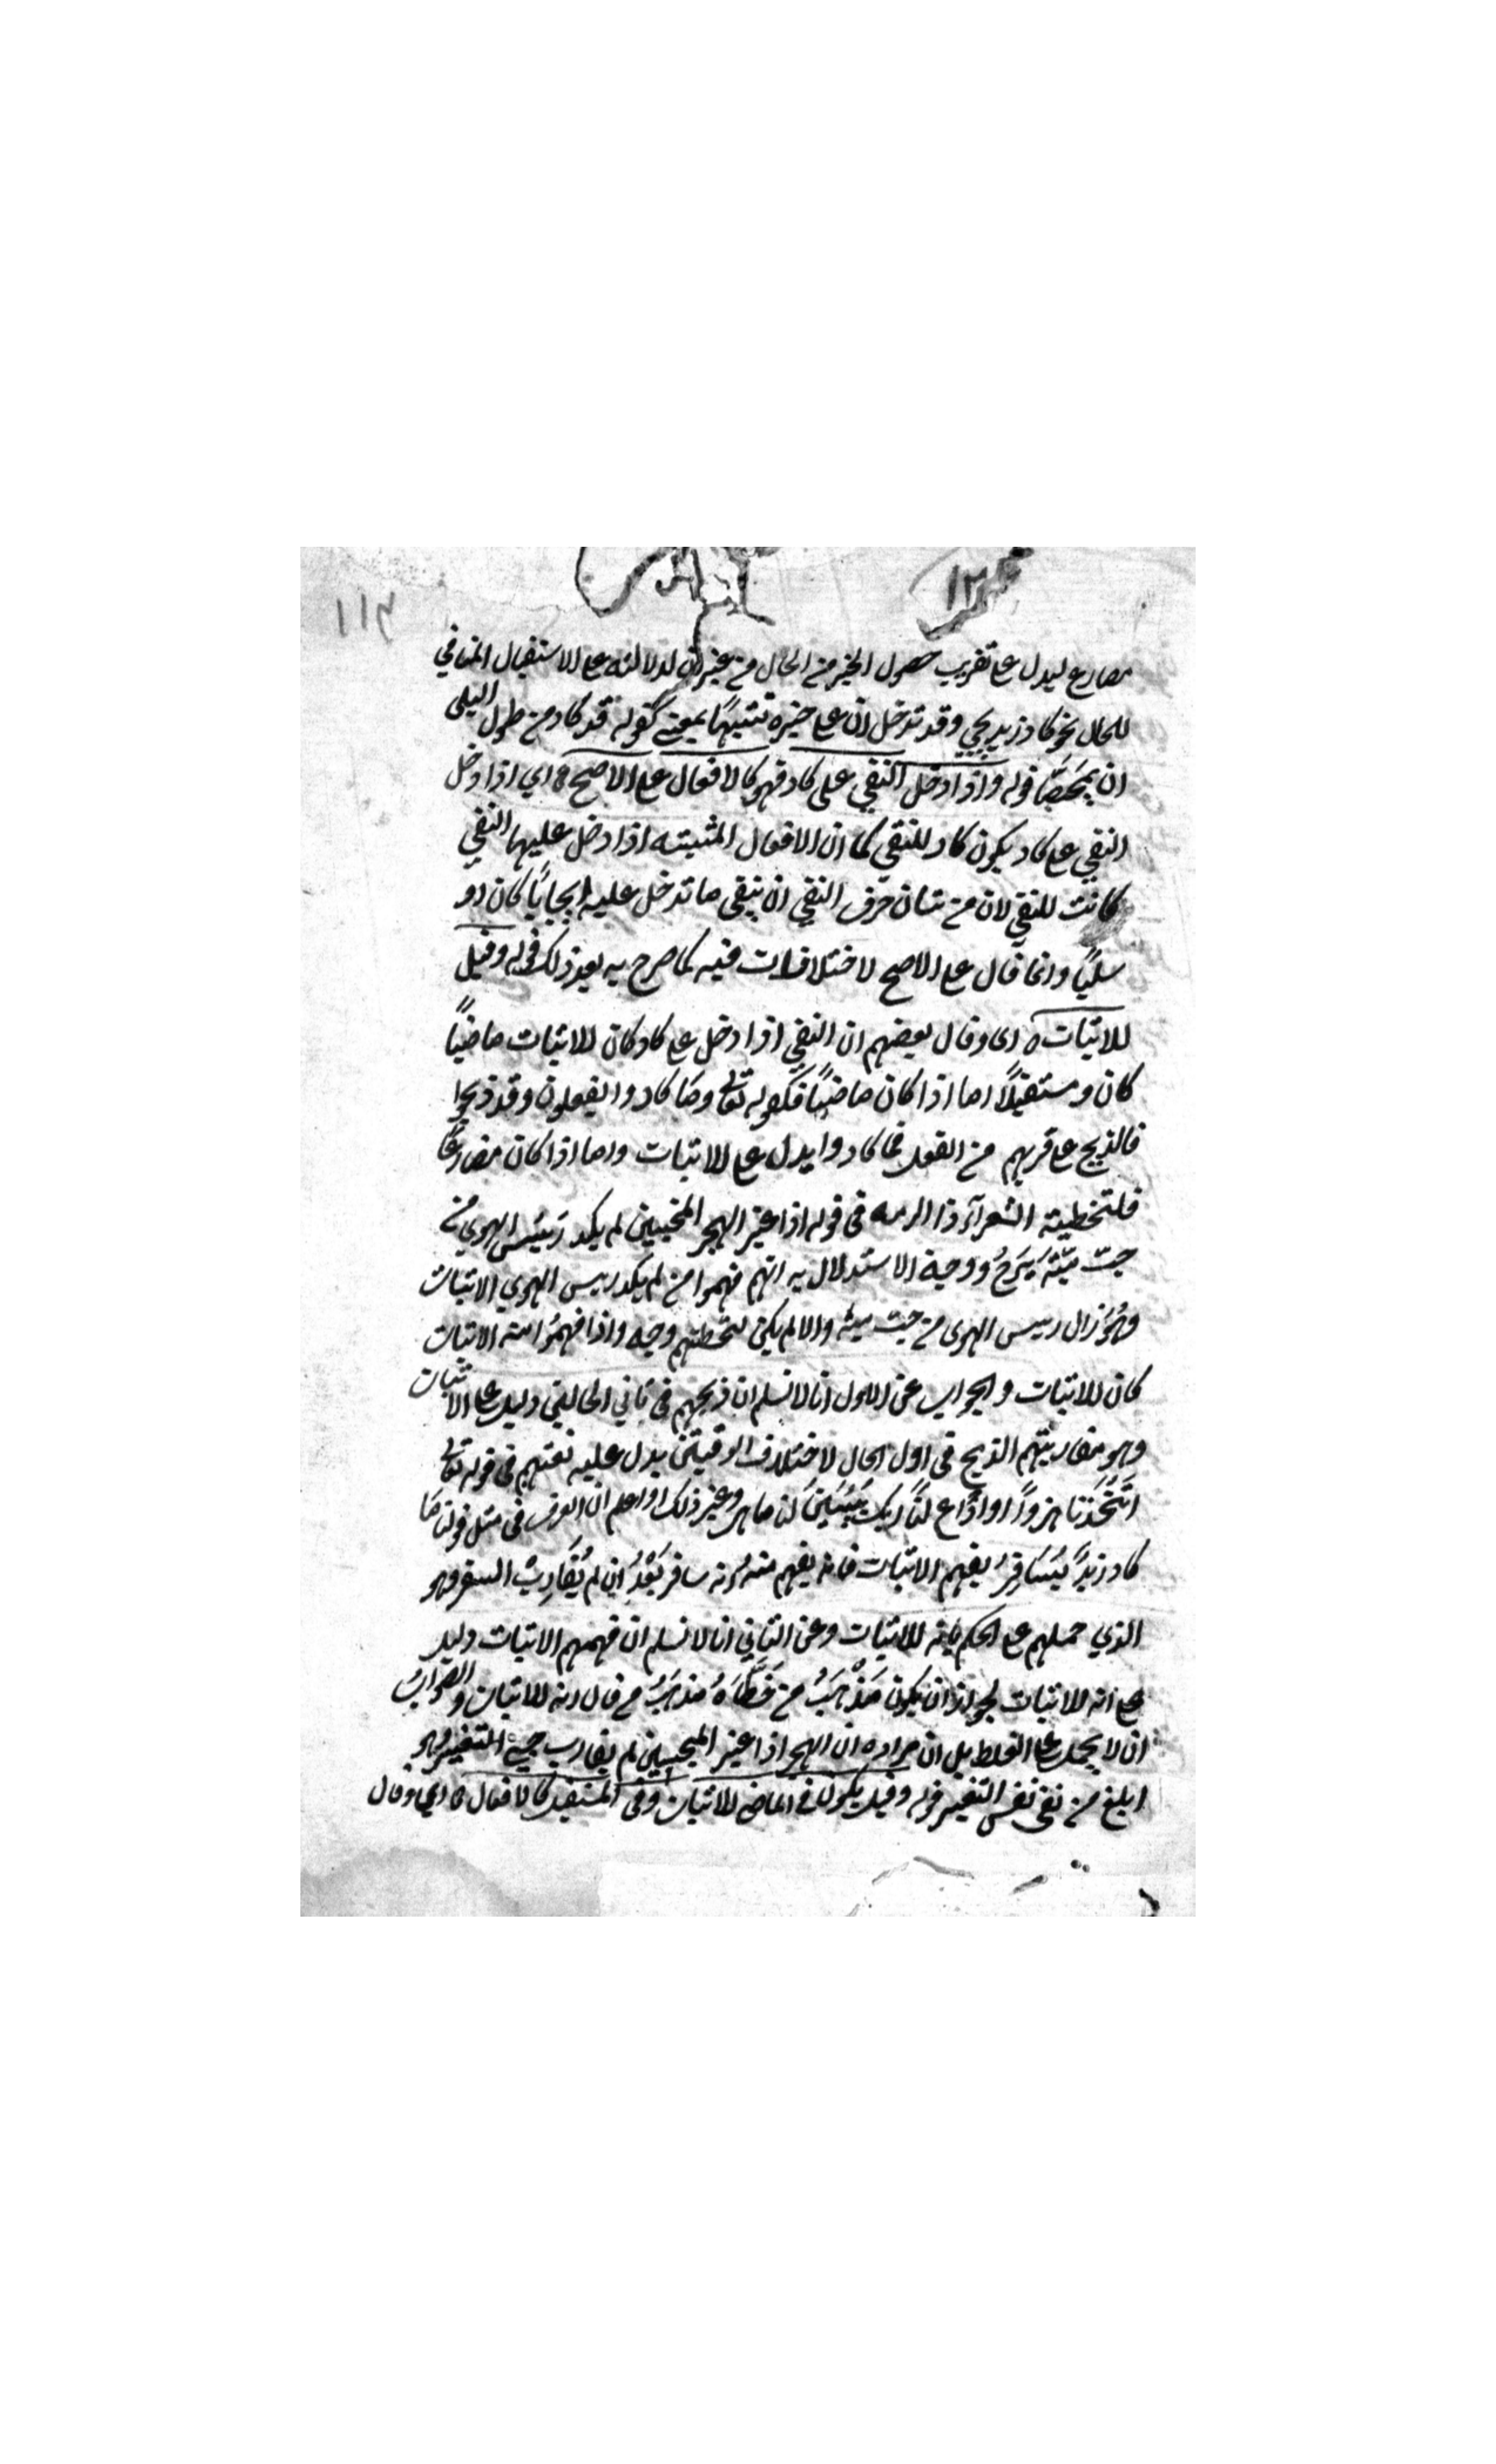 ١١٣
مضارع ليدل على تقريب حصول الخبر من الحال من غير ان لدلالته على الاستقبال المنافي
للحال نحو كاد زيد يجي وقد تدخل ان على خبره تشبيهًا بعسى كقوله قد كاد من طول البلى
ان يمصحا قوله واذا دخل النفي على كاد فهو كالافعال على الاصح ه اي اذا دخل
النفي على كاد يكون كاد للنفي كما ان الافعال المثبته اذا دخل عليها النفي
كانت للنفي لان من شان حرف النفي ان ينفى ما تدخل عليه ايجابًا كان او
سلبًا وانما قال على الاصح لاختلافات فيه كما صرح به بعد ذلك قوله وقيل
للاثبات ه اى وقال بعضهم ان النفي اذا دخل على كاد كان للاثبات ماضيًا
كان ومستقبلًا اما اذا كان ماضيًا فكقوله تعالى وما كادوا يفعلون وقد ذبحوا
فالذبح على قربهم من الفعل فما كادوا يدل على الاثبات واما اذا كان مضارعًا
فلتخطية الشعرآء ذا الرمه فى قوله اذا غير الهجر المحبين لم يكد رسيس الهوي من
حبّ ميّة يبرح ووجه الاستدلال به انهم فهموا من لم يكد رسيس الهوي الاثبات
وهو زال رسيس الهوى من حبّ ميه والا لم يكن لتخطئتهم وجه واذا فهموا منه الاثبات
كان للاثبات والجواب عن الاول انا لا نسلم ان ذبحهم فى ثاني الحالين دليل على الاثبات
وهو مقاربتهم الذبح فى اول الحال لاختلاف الوقتين يدل عليه تعنتهم فى قوله تعالى
اتتخذنا هزوًا وادع لنا ربك يبين لنا ما هى وغير ذلك واعلم ان العرف فى مثل قولنا ما
كاد زيد يسافر يفهم الاثبات فانه يفهم منه انه سافر بعد ان لم يقارب السفر وهو
الذي حملهم على الحكم بانه للاثبات وعن الثاني انا لا نسلم ان فهمهم الاثبات دليل
على انه للاثبات لجواز ان يكون مذهب من خطاه مذهب من قال انه للاثبات والصواب
ان لا يحمل على الغلط بل ان مراده ان الهجر اذا غير المحبين لم يقارب حبى التغير وهو
ابلغ من نفى نفس التغير قوله وقيل يكون فى الماضى للاثبات وفى المستقبل كالافعال ه اي وقال